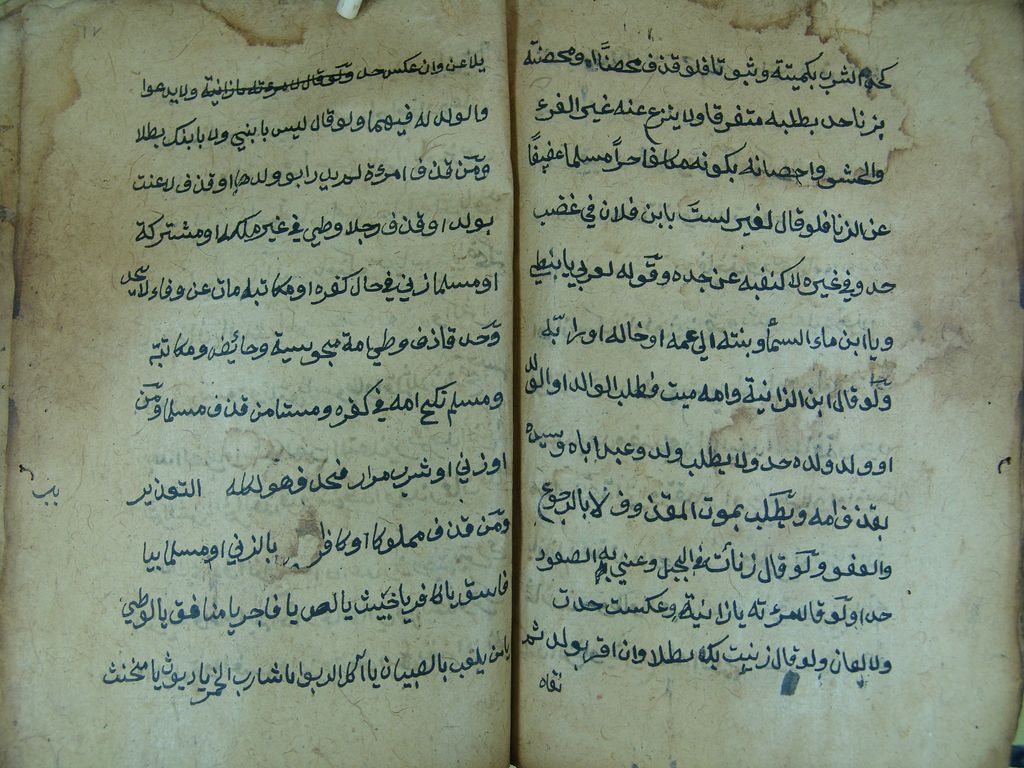 كحد الشرب بكميته وثبوتا فلو قذف محصنا او محصنة
بزنا حد بطلبه متفرقا ولا ينزع عنه غير الفرو
والحشو واحصانه بكونه مكلفا حرا مسلما عفيفا
عن الزنا فلو قال لغيره لست بابن فلان في غضب
حد وفي غيره لا كنفيه عن جده وقوله لعربي يا نبطي
ويا ابن ماء السماء ونسبته الى عمه او خاله او رابه
ولو قال ابن الزانية وامه ميت فطلب الوالد او الولد
او ولد ولده حد ولا يطلب ولد وعبد اباه وسيده
بقذف امه ويطلب بموت المقذوف لا بالرجوع
والعفو ولو قال زنأت في الجبل وعني به الصعود
حد او لو قال لامرءته يا زانية وعكست حدت
ولا لعان ولو قال زنيت بك بطلا وان اقر بولد ثم
نفاه
يلاعن وان عكس حد ولو قال لامرءته يا زانية ولا يدعوا
والولد له فيهما ولو قال ليس بابني ولا بابنك بطلا
ومن قذف امرءة لم يدر ابو ولدها او قذف لاعنت
بولد او قذف رجلا وطي في غير ملكه او مشتركة
او مسلما زني في حال كفره او مكاتبه مات عن وفاء لا يحد
وحد قاذف وطي امة مجوسية وحائض ومكاتبة
ومسلم نكح امه في كفره ومستامن قذف مسلما ومن
او زني او شرب مرار فحد فهو لكله التعذير
ومن قذف مملوكا او كافر بالزني او مسلما بيا
فاسق يا كافر يا خبيث يا لص يا فاجر يا منافق يا لوطي
يا من يلعب بالصبيان يا اكل الربوا يا شارب الخمر يا ديوث يا مخنث